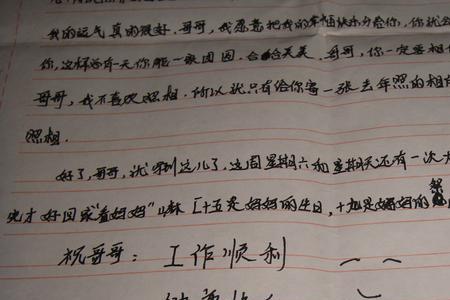 我的运气真的很好.哥哥,我愿意把我的幸福快乐分给你,你就会
你,这样总有一天你能一家团圆,合合美美.哥哥,你一定要相
哥哥,我不喜欢照相.所以就只有给你寄一张去年照的相
照相.
好了,哥哥,就写到这儿了.这周星期六和星期天还有一次
完才好回家看妈妈"
十五是妈妈的生日,十九是妈妈的
祝哥哥:工作顺利